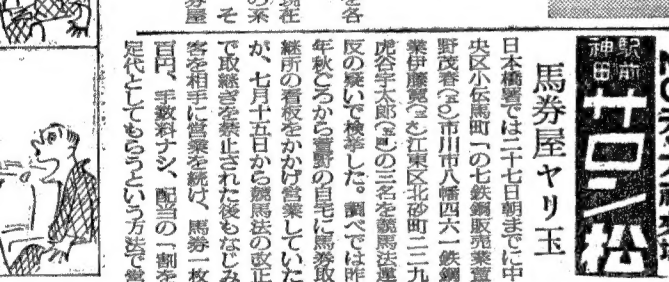 駅前
神田
サロン松
馬券屋ヤリ玉
日本橋署では二十七日朝までに中
央区小伝馬町一の七鉄鋼販売業萱
野茂春(五〇)市川市八幡四六一鉄鋼
業伊藤寛(　)江東区北砂町二ノ二九
虎谷宇太郎(　)の三名を競馬法違
反の疑いで検挙した。調べでは昨
年秋ごろから萱野の自宅に馬券取
継所の看板をかかげ営業していた
が、七月十五日から競馬法の改正
で取継ぎを禁止された後もなじみ
客を相手に営業を続け、馬券一枚
百円、手数料ナシ、配当の一割を
定代としてもらうという方法で営